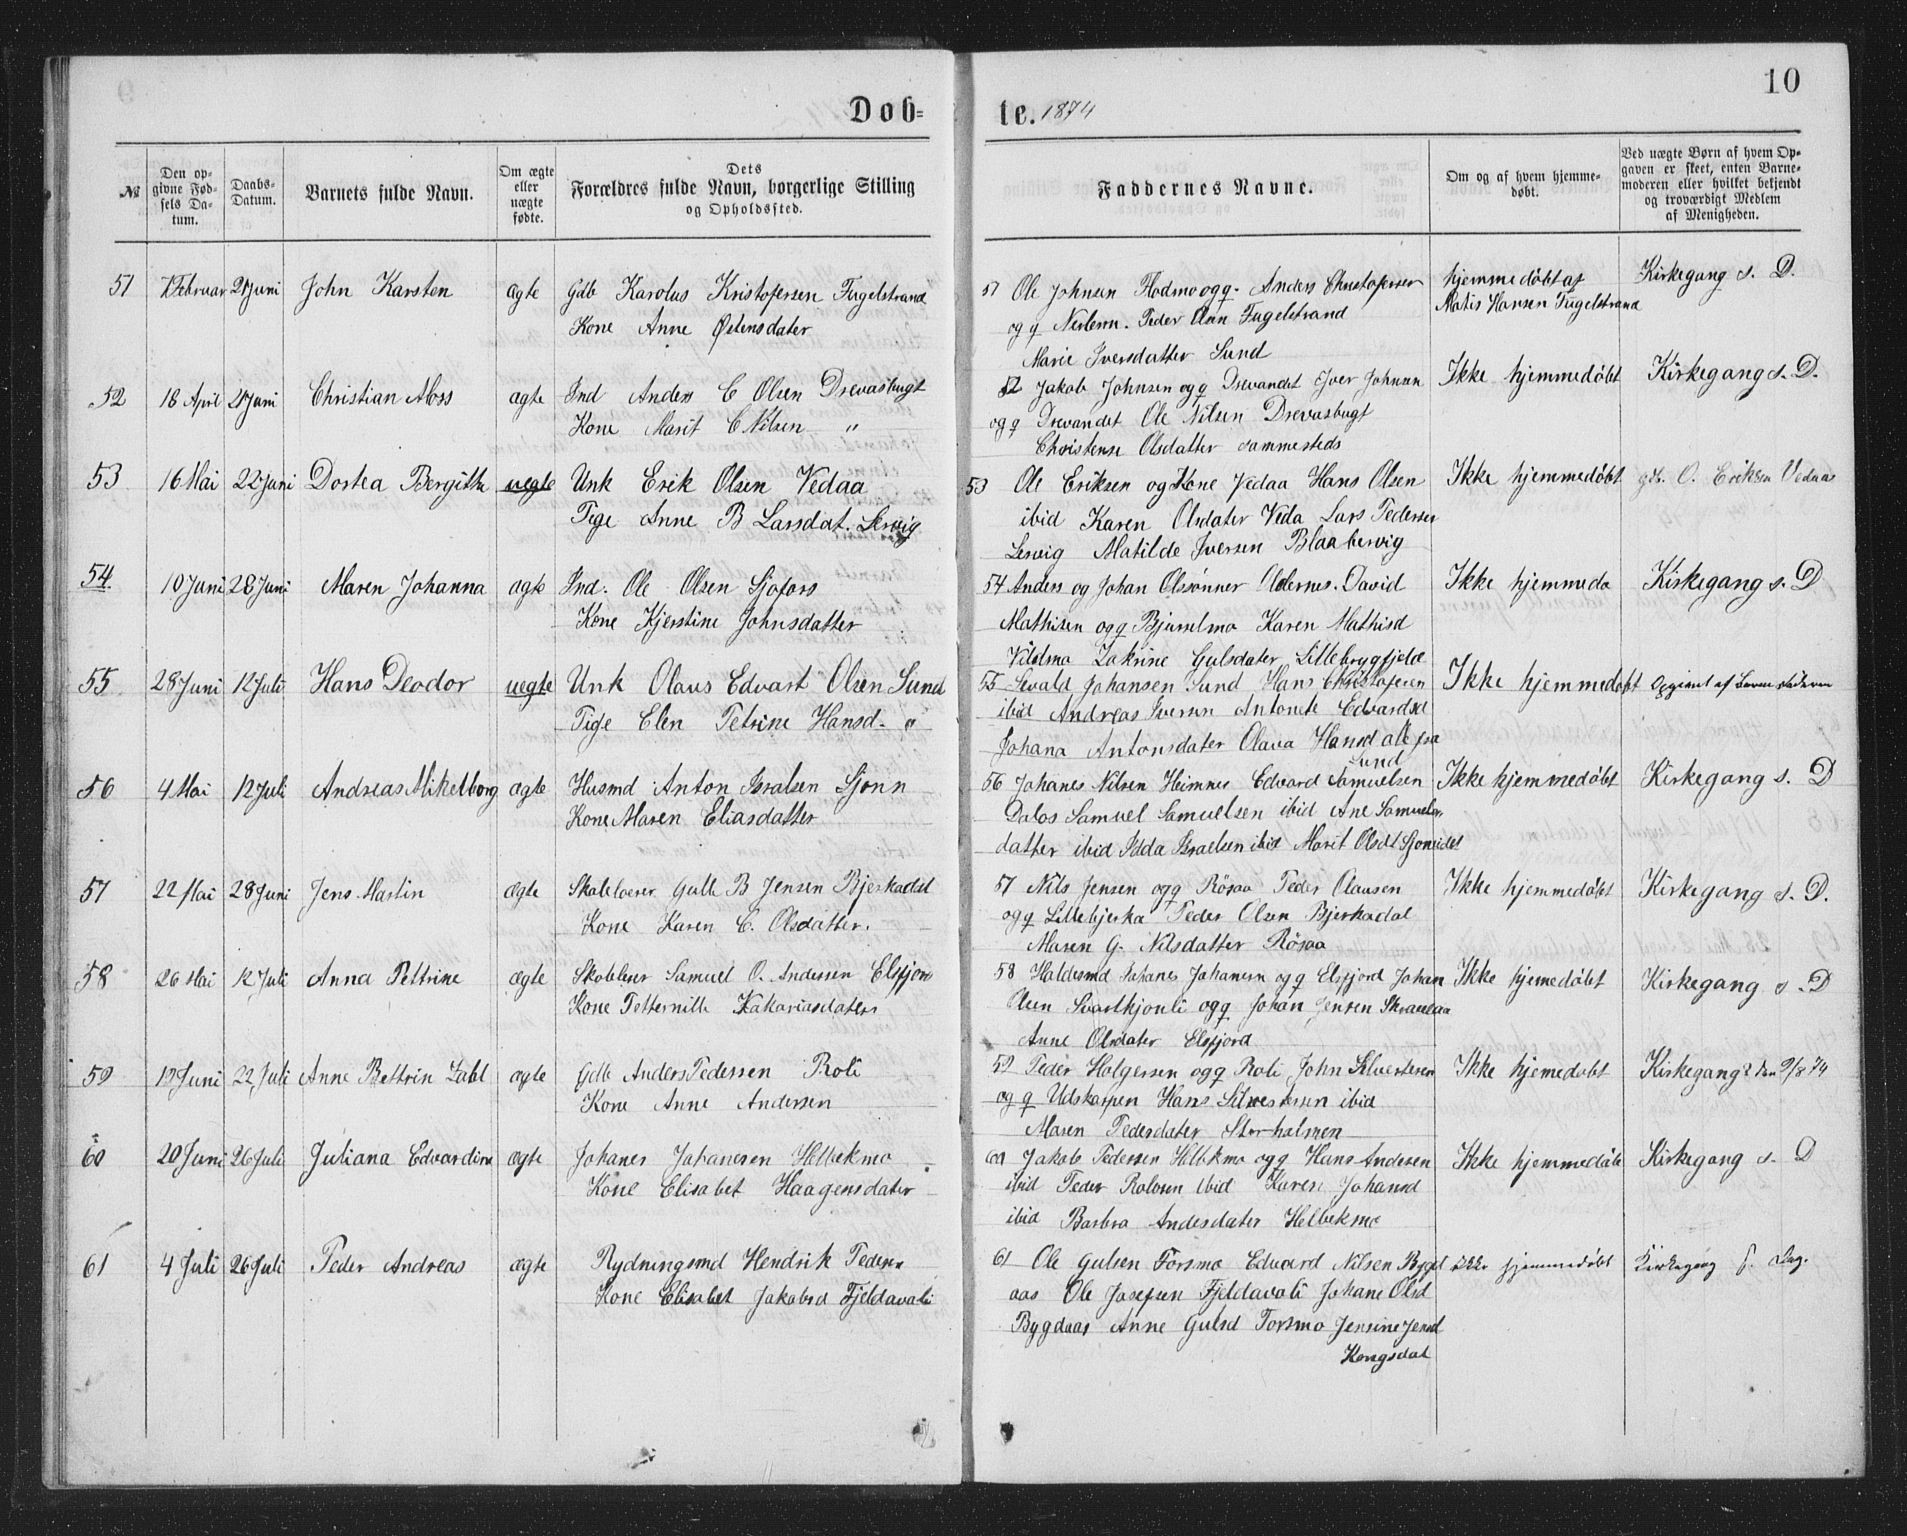 10
Døb=
te. 1874
№
Den op-
givne Fød-
sels Da-
tum.
Daabs-
Datum.
Barnets fulde Navn.
Om ægte
eller
uægte
fødte.
Dets
Forældres fulde Navn, borgerlige Stilling
og Opholdssted.
Faddernes Navne.
Om og af hvem hjemme-
døbt.
Ved uægte Børn af hvem Op-
gaven er skeet, enten Barne-
moderen eller hvilket bekjendt
og troværdigt Medlem
af Menigheden.
51 Februar 21 Juni John Karsten ægte Gdb Karolus Kristofersen Fugelstrand
Kone Anne Østensdater
51 Ole Johnsen Flodmo og q. Anders Christofersen
og q Nerlenn. Peder Olsen Fugelstrand
Marie Iversdatter Sund
hjemmedøbt af
Matis Hansen Fugelstrand
Kirkegang s. D.
52 18 April 21 Juni Christian Moss ægte Ind Anders C Olsen Drevasbugt
Kone Marit C Nilsen "
52 Jakob Johnsen og q Drevandet Iver Johnsen
og q Drevandet Ole Nilsen Drevasbugt
Christense Olsdatter sammesteds
Ikke hjemmedøbt
Kirkegang s. D.
53 16 Mai 22 Juni Dortea Bergitte uegte Unk Erik Olsen Vedaa
Pige Anne B Larsdat. Lervig
53 Ole Eriksen og Kone Vedaa Hans Olsen
ibid Karen Olsdater Veda Lars Pedersen
Lervig Matilde Iversen Blaabervig
Ikke hjemmedøbt
gdb. O. Eriksen Vedaas
54 10 Juni 28 Juni Maren Johanna ægte Ind. Ole Olsen Sjofors
Kone Kjerstine Johnsdatter
54 Anders og Johan Olssønner Oldernes. David
Mathisen og q Bjurselmo Karen Mathisd
Vildmo Zakrine Gulsdater Lillebrygfjeld
Ikke hjemmedø
Kirkegang s. D
55 28 Juni 12 Juli Hans Deodor uegte Unk Olaus Edvart Olsen Sund
Pige Elen Petrine Hansd. "
55 Sevald Johansen Sund Hans Christofersen
ibid Andreas Iversen Antonete Edvardsd
Johana Antonsdater Olava Hansd alle fra
Sund
Ikke hjemmedøbt
Opgivet af Barnefaderen
56 4 Mai 12 Juli Andreas Mikelborg ægte Husmd Anton Isralsen Sjonn
Kone Maren Eliasdatter
56 Johanes Nilsen Heimnes Edvard Samuelsen
Dalos Samuel Samuelsen ibid Ane Samuels
datter ibid Idda Israelsen ibid Marit Olsdt Sjoneidet
Ikke hjemmedøbt
Kirkegang s. D
57 22 Mai 28 Juni Jens Martin ægte Skolelærer Gulle B Jensen Bjerkadal
Kone Karen C. Olsdatter.
57 Nils Jensen og q Røsaa Peder Olausen
og q Lillebjerka Peder Olsen Bjerkadal
Maren G. Nilsdatter Røsaa
Ikke hjemmedøbt
Kirkegang s. D.
58 26 Mai 12 Juli Anna Pettrine ægte Skolelærer Samuel O. Andersen Elsfjord
Kone Petternille Zakariasdater
58 Holdesmd Johanes Johansen og q Elsfjord Johan
Olsen Svartkjonli og q Johan Jensen Skravlaa
Anne Olsdater Elsfjord
Ikke hjemedøbt
Kirkegang s. D
59 19 Juni 22 Juli Anne Bettrin Zabl ægte Gdb Anders Pedersen Roli
Kone Anne Andersen
59 Peder Holgersen og q Roli John Silvestersen
og q Udskarpen Hans Silvestersen ibid
Maren Pedersdater Storholmen
Ikke hjemedøbt
Kirkegang den 9/8 74
60 20 Juni 26 Juli Juliana Edvardine ægte Johanes Johanesen Helbekmo
Kone Elisabet Haagensdater
60 Jakob Pedersen Helbekmo og q Hans Andersen
ibid Peder Rolvsen ibid Karen Johansd
ibid Barbra Andersdater Helbekmo
Ikke hjemmedøbt
Kirkegang s. D
61 4 Juli 26 Juli Peder Andreas ægte Rydningsmd Hendrik Pedersen
Kone Elisabet Jakobsd Fjeldavoli
61 Ole Gulsen Forsmo Edvard Nilsen Bygd
aas Ole Josefsen Fjeldavoli Johane Olsd
Bygdaas Anne Gulsd Forsmo Jensine Jensd
Kongsdal
Ikke hjemmedøbt
Kirkegang s. Dag.